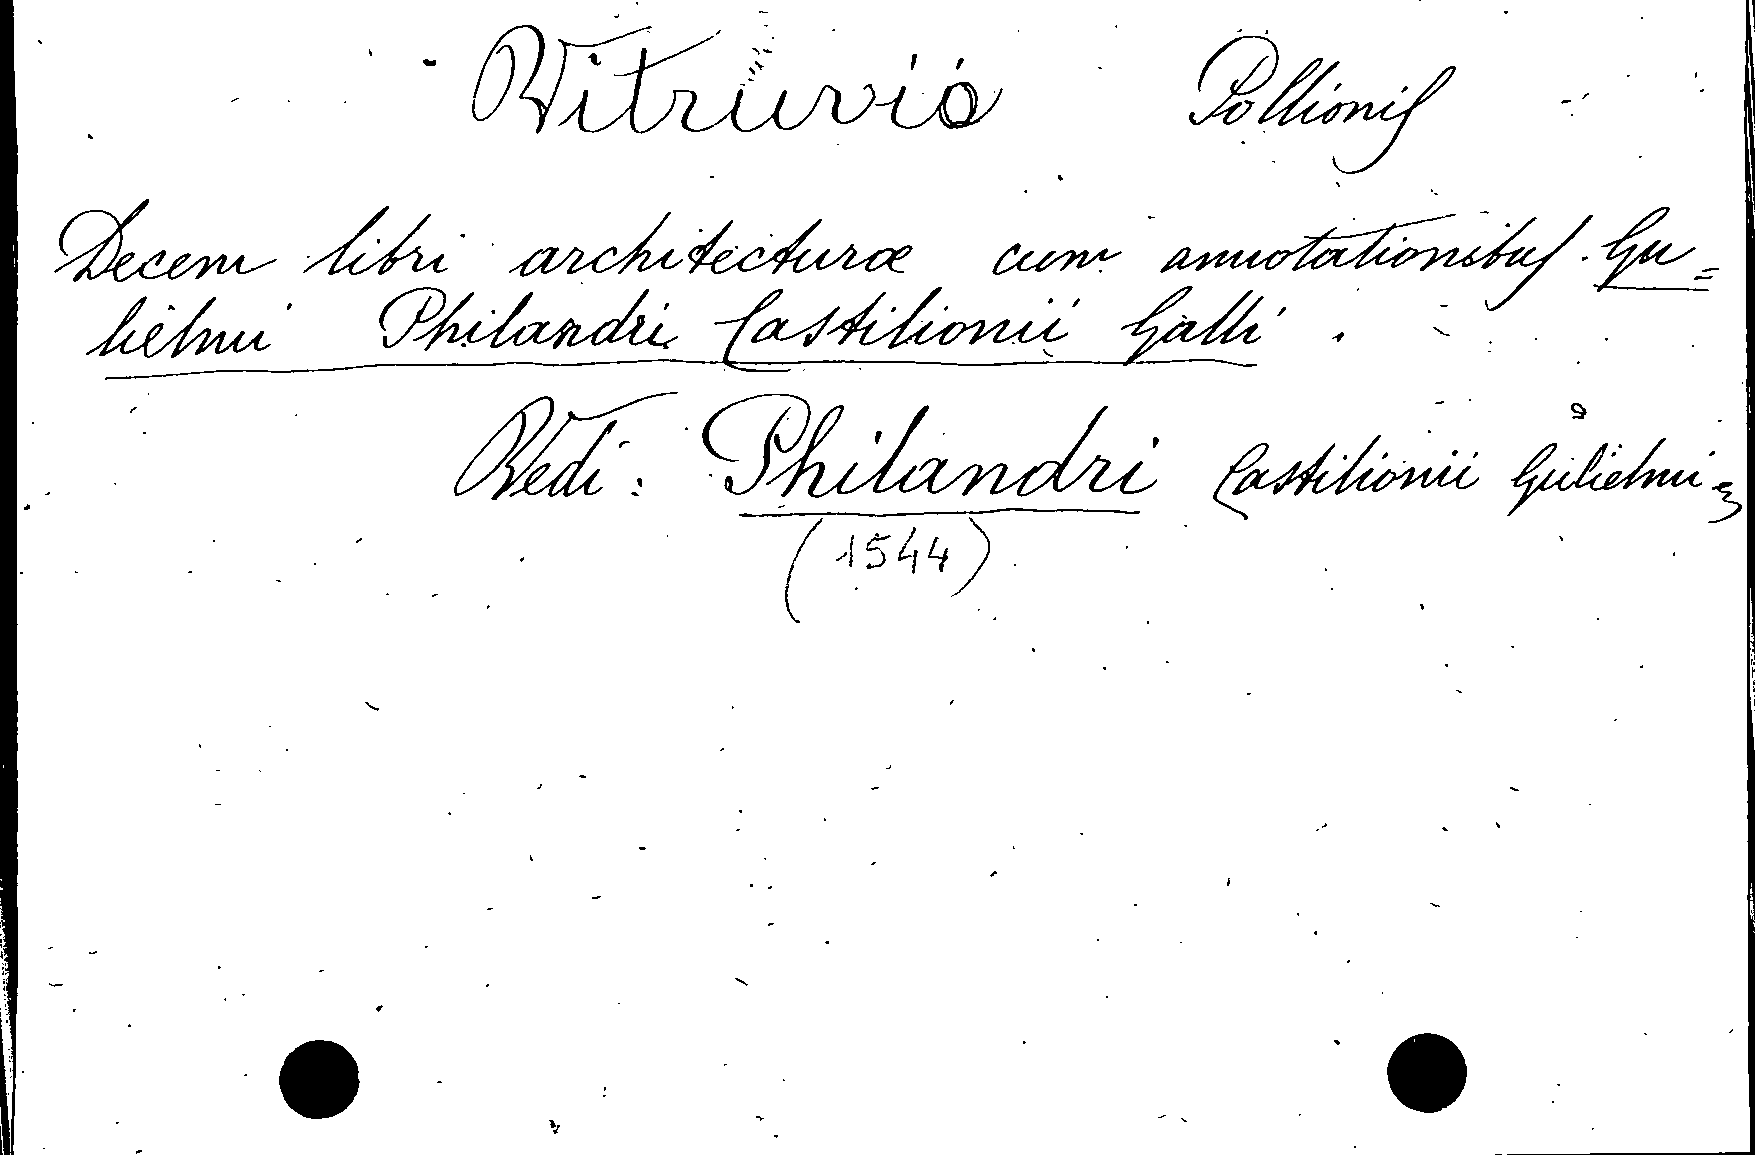 Vitruvio Pollionis
Decem libri architecturæ cum annotationibus Gu=
lielmi Philandri Castilionii Galli.
Vedi: Philandri Castilionii Gulielmi
(1544)